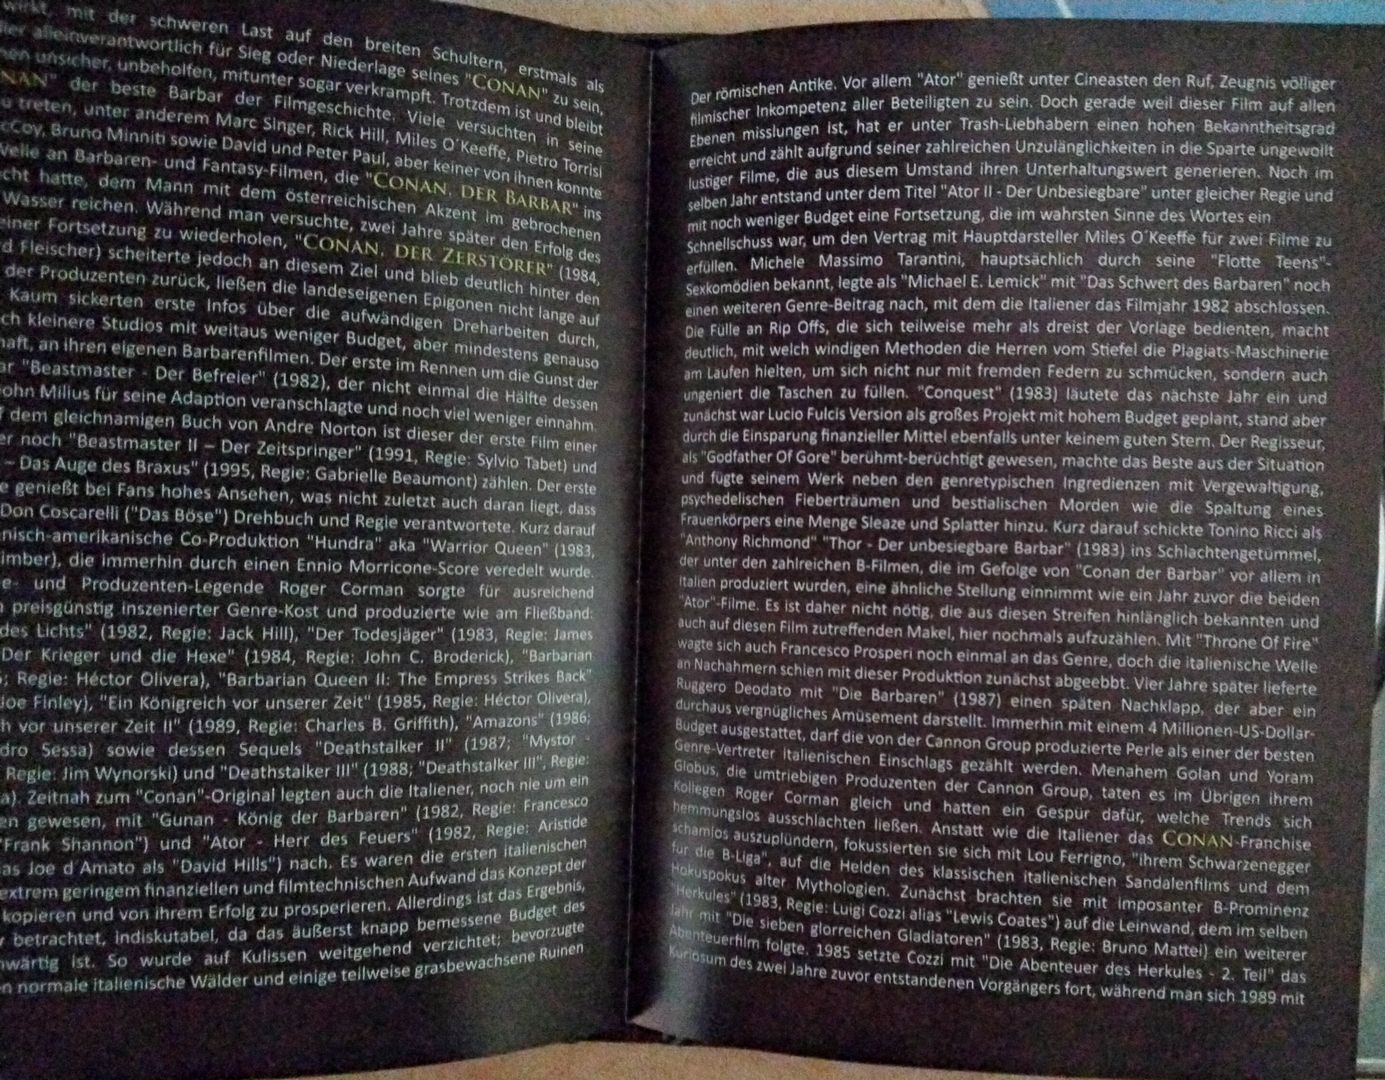 wirkt, mit der schweren Last auf den breiten Schultern, erstmals als
alleinverantwortlich für Sieg oder Niederlage seines "CONAN" zu sein,
unsicher, unbeholfen, mitunter sogar verkrampft. Trotzdem ist und bleibt
NAN" der beste Barbar der Filmgeschichte. Viele versuchten in seine
treten, unter anderem Marc Singer, Rick Hill, Miles O´Keeffe, Pietro Torrisi
cCoy, Bruno Minniti sowie David und Peter Paul, aber keiner von ihnen konnte
Welle an Barbaren- und Fantasy-Filmen, die "CONAN, DER BARBAR" ins
cht hatte, dem Mann mit dem österreichischen Akzent im gebrochenen
Wasser reichen. Während man versuchte, zwei Jahre später den Erfolg des
einer Fortsetzung zu wiederholen, "CONAN, DER ZERSTÖRER" (1984,
d Fleischer) scheiterte jedoch an diesem Ziel und blieb deutlich hinter den
der Produzenten zurück, ließen die landeseigenen Epigonen nicht lange auf
Kaum sickerten erste Infos über die aufwändigen Dreharbeiten durch,
ch kleinere Studios mit weitaus weniger Budget, aber mindestens genauso
haft, an ihren eigenen Barbarenfilmen. Der erste im Rennen um die Gunst der
ar "Beastmaster - Der Befreier" (1982), der nicht einmal die Hälfte dessen
John Milius für seine Adaption veranschlagte und noch viel weniger einnahm.
f dem gleichnamigen Buch von Andre Norton ist dieser der erste Film einer
er noch "Beastmaster II – Der Zeitspringer" (1991, Regie: Sylvio Tabet) und
– Das Auge des Braxus" (1995, Regie: Gabrielle Beaumont) zählen. Der erste
e genießt bei Fans hohes Ansehen, was nicht zuletzt auch daran liegt, dass
Don Coscarelli ("Das Böse") Drehbuch und Regie verantwortete. Kurz darauf
nisch-amerikanische Co-Produktion "Hundra" aka "Warrior Queen" (1983,
imber), die immerhin durch einen Ennio Morricone-Score veredelt wurde.
e- und Produzenten-Legende Roger Corman sorgte für ausreichend
preisgünstig inszenierter Genre-Kost und produzierte wie am Fließband:
des Lichts" (1982, Regie: Jack Hill), "Der Todesjäger" (1983, Regie: James
"Der Krieger und die Hexe" (1984, Regie: John C. Broderick), "Barbarian
; Regie: Héctor Olivera), "Barbarian Queen II: The Empress Strikes Back"
Joe Finley), "Ein Königreich vor unserer Zeit" (1985, Regie: Héctor Olivera),
h vor unserer Zeit II" (1989, Regie: Charles B. Griffith), "Amazons" (1986;
dro Sessa) sowie dessen Sequels "Deathstalker II" (1987; "Mystor -
Regie: Jim Wynorski) und "Deathstalker III" (1988; "Deathstalker III", Regie:
a). Zeitnah zum "Conan"-Original legten auch die Italiener, noch nie um ein
en gewesen, mit "Gunan - König der Barbaren" (1982, Regie: Francesco
"Frank Shannon") und "Ator - Herr des Feuers" (1982, Regie: Aristide
as Joe d´Amato als "David Hills") nach. Es waren die ersten italienischen
extrem geringem finanziellen und filmtechnischen Aufwand das Konzept der
kopieren und von ihrem Erfolg zu prosperieren. Allerdings ist das Ergebnis,
betrachtet, indiskutabel, da das äußerst knapp bemessene Budget des
nwärtig ist. So wurde auf Kulissen weitgehend verzichtet; bevorzugte
n normale italienische Wälder und einige teilweise grasbewachsene Ruinen
Der römischen Antike. Vor allem "Ator" genießt unter Cineasten den Ruf, Zeugnis völliger
filmischer Inkompetenz aller Beteiligten zu sein. Doch gerade weil dieser Film auf allen
Ebenen misslungen ist, hat er unter Trash-Liebhabern einen hohen Bekanntheitsgrad
erreicht und zählt aufgrund seiner zahlreichen Unzulänglichkeiten in die Sparte ungewollt
lustiger Filme, die aus diesem Umstand ihren Unterhaltungswert generieren. Noch im
selben Jahr entstand unter dem Titel "Ator II - Der Unbesiegbare" unter gleicher Regie und
mit noch weniger Budget eine Fortsetzung, die im wahrsten Sinne des Wortes ein
Schnellschuss war, um den Vertrag mit Hauptdarsteller Miles O´Keeffe für zwei Filme zu
erfüllen. Michele Massimo Tarantini, hauptsächlich durch seine "Flotte Teens"-
Sexkomödien bekannt, legte als "Michael E. Lemick" mit "Das Schwert des Barbaren" noch
einen weiteren Genre-Beitrag nach, mit dem die Italiener das Filmjahr 1982 abschlossen.
Die Fülle an Rip Offs, die sich teilweise mehr als dreist der Vorlage bedienten, macht
deutlich, mit welch windigen Methoden die Herren vom Stiefel die Plagiats-Maschinerie
am Laufen hielten, um sich nicht nur mit fremden Federn zu schmücken, sondern auch
ungeniert die Taschen zu füllen. "Conquest" (1983) läutete das nächste Jahr ein und
zunächst war Lucio Fulcis Version als großes Projekt mit hohem Budget geplant, stand aber
durch die Einsparung finanzieller Mittel ebenfalls unter keinem guten Stern. Der Regisseur,
als "Godfather Of Gore" berühmt-berüchtigt gewesen, machte das Beste aus der Situation
und fügte seinem Werk neben den genretypischen Ingredienzen mit Vergewaltigung,
psychedelischen Fieberträumen und bestialischen Morden wie die Spaltung eines
Frauenkörpers eine Menge Sleaze und Splatter hinzu. Kurz darauf schickte Tonino Ricci als
"Anthony Richmond" "Thor - Der unbesiegbare Barbar" (1983) ins Schlachtengetümmel,
der unter den zahlreichen B-Filmen, die im Gefolge von "Conan der Barbar" vor allem in
Italien produziert wurden, eine ähnliche Stellung einnimmt wie ein Jahr zuvor die beiden
"Ator"-Filme. Es ist daher nicht nötig, die aus diesen Streifen hinlänglich bekannten und
auch auf diesen Film zutreffenden Makel, hier nochmals aufzuzählen. Mit "Throne Of Fire"
wagte sich auch Francesco Prosperi noch einmal an das Genre, doch die italienische Welle
an Nachahmern schien mit dieser Produktion zunächst abgeebbt. Vier Jahre später lieferte
Ruggero Deodato mit "Die Barbaren" (1987) einen späten Nachklapp, der aber ein
durchaus vergnügliches Amüsement darstellt. Immerhin mit einem 4 Millionen-US-Dollar-
Budget ausgestattet, darf die von der Cannon Group produzierte Perle als einer der besten
Genre-Vertreter Italienischen Einschlags gezählt werden. Menahem Golan und Yoram
Globus, die umtriebigen Produzenten der Cannon Group, taten es im Übrigen ihrem
Kollegen Roger Corman gleich und hatten ein Gespür dafür, welche Trends sich
hemmungslos ausschlachten ließen. Anstatt wie die Italiener das CONAN-Franchise
schamlos auszuplündern, fokussierten sie sich mit Lou Ferrigno, "ihrem Schwarzenegger
für die B-Liga", auf die Helden des klassischen italienischen Sandalenfilms und dem
Hokuspokus alter Mythologien. Zunächst brachten sie mit imposanter B-Prominenz
"Herkules" (1983, Regie: Luigi Cozzi alias "Lewis Coates") auf die Leinwand, dem im selben
Jahr mit "Die sieben glorreichen Gladiatoren" (1983, Regie: Bruno Mattei) ein weiterer
Abenteuerfilm folgte. 1985 setzte Cozzi mit "Die Abenteuer des Herkules - 2. Teil" das
Kuriosum des zwei Jahre zuvor entstandenen Vorgängers fort, während man sich 1989 mit